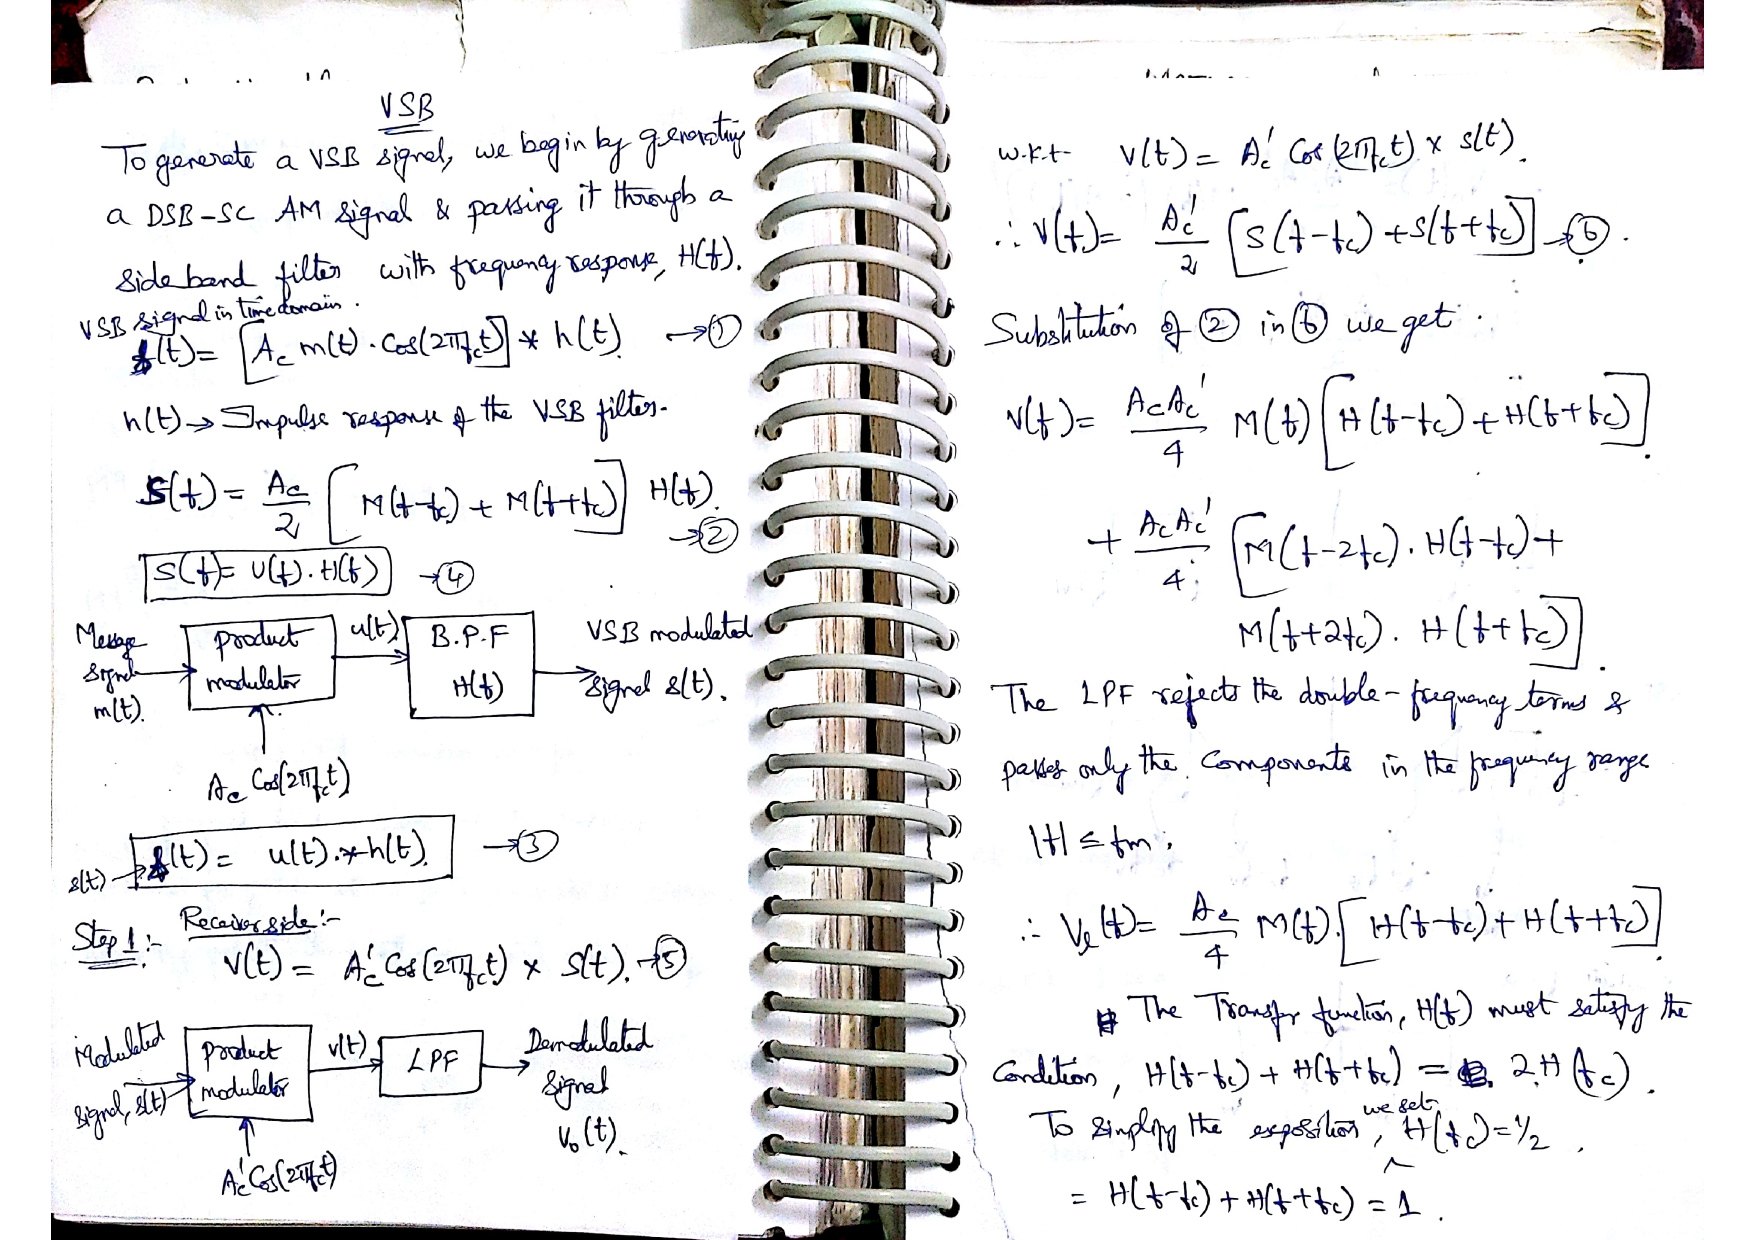 VSB
To generate a VSB signal, we begin by generating
a DSB-SC AM signal & passing it through a
side band filter with frequency response, H(f).
VSB signal in time domain.
s(t) = [Ac m(t) . Cos(2πfct)] * h(t) →①
h(t) → Impulse response of the VSB filter.
S(f) = Ac/2 [M(f-fc) + M(f+fc)] H(f). →②
S(f) = U(f). H(f) →④
Message signal m(t).
product modulator
u(t)
B.P.F H(f)
VSB modulated signal s(t).
Ac Cos(2πfct)
s(t) → s(t) = u(t).*h(t). →③
Step 1 :- Receiver side :-
v(t) = Ac' Cos(2πfct) x s(t). →⑤
Modulated signal, s(t)
product modulator
v(t)
LPF
Demodulated signal Vo(t).
Ac' Cos(2πfct)
w.k.t v(t) = Ac' Cos(2πfct) x s(t).
∴ V(f) = Ac'/2 [S(f-fc) + S(f+fc)] →⑥.
Substitution of ② in ⑥ we get.
V(f) = AcAc'/4 M(f) [H(f-fc) + H(f+fc)].
+ AcAc'/4 [M(f-2fc). H(f-fc) +
M(f+2fc). H(f+fc)].
The LPF rejects the double-frequency terms &
passes only the components in the frequency range
|f| ≤ fm.
∴ Vo(f) = Ac/4 M(f). [H(f-fc) + H(f+fc)].
The Transfer function, H(f) must satisfy the
Condition, H(f-fc) + H(f+fc) = 2.H(fc).
To simplify the exposition, we set H(fc) = 1/2.
= H(f-fc) + H(f+fc) = 1.